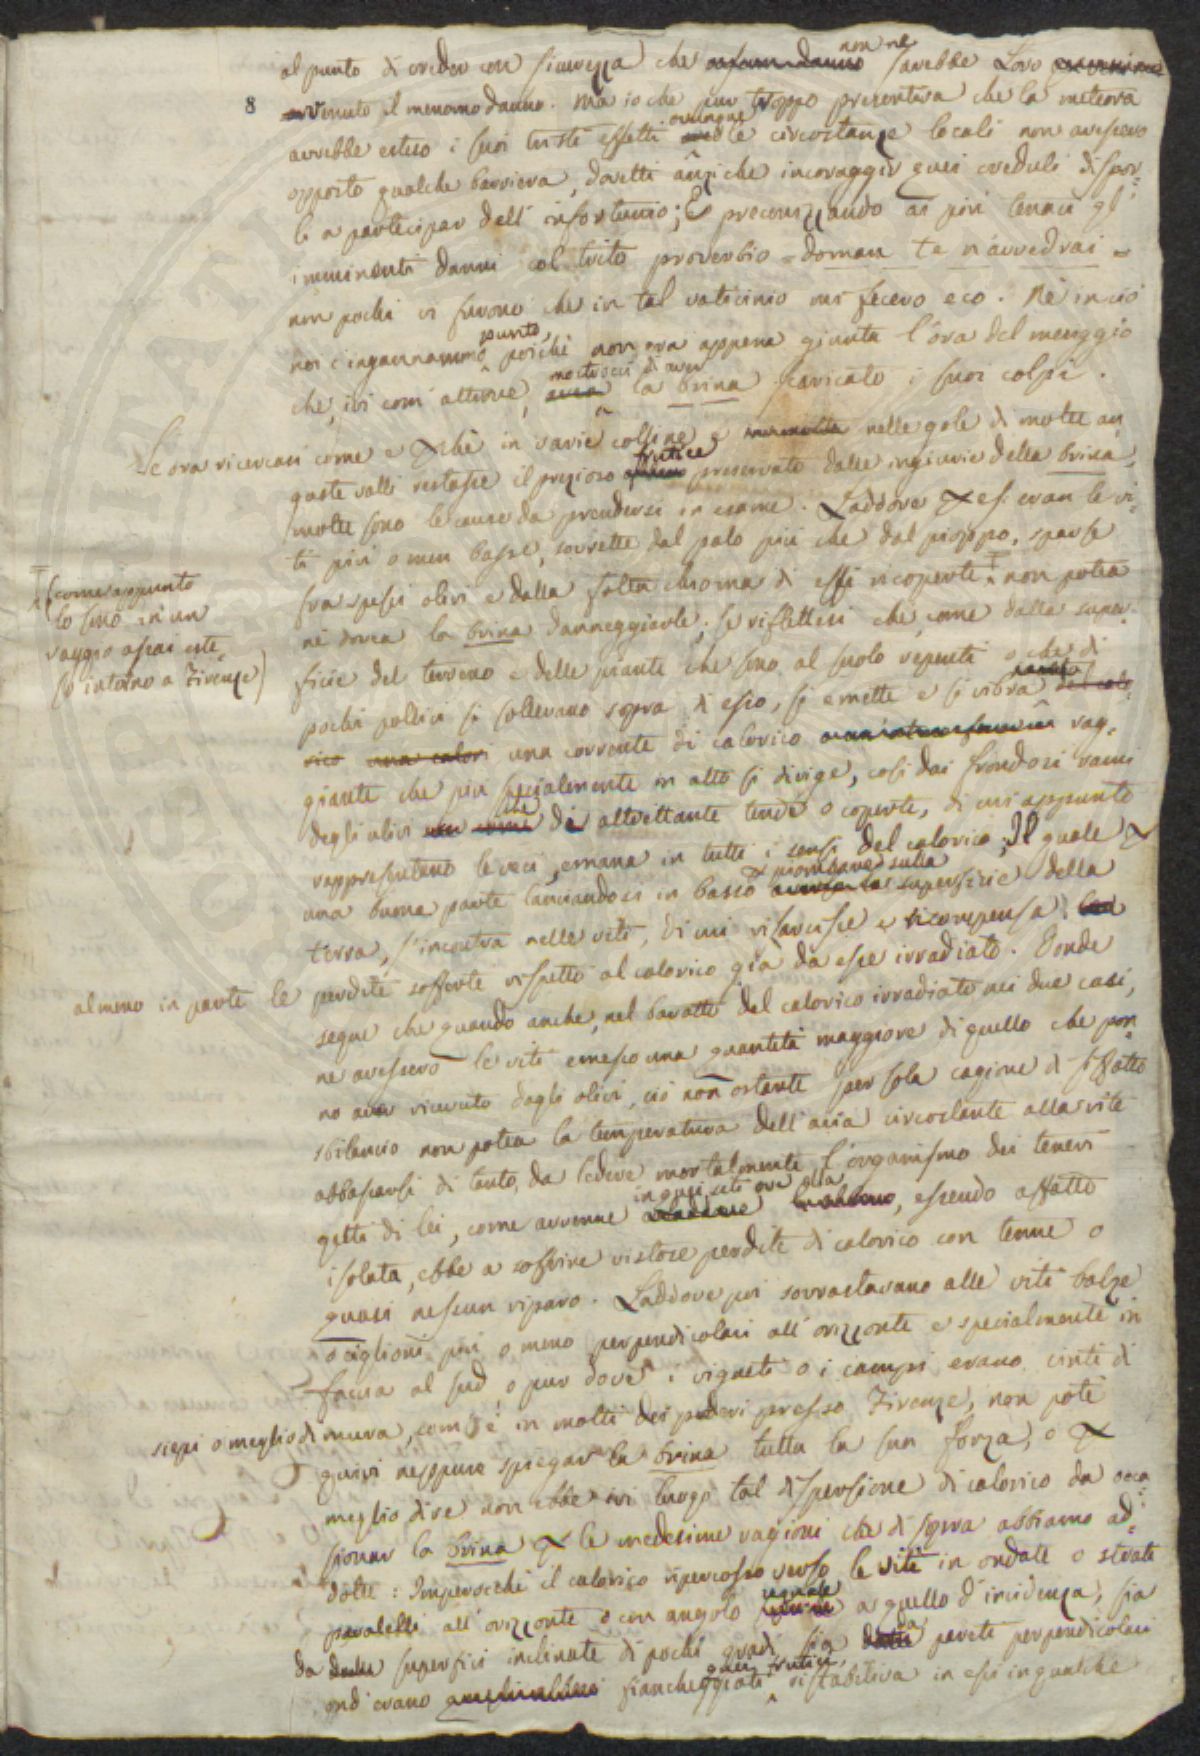 al punto di creder con sicurezza che non ne sarebbe Loro
8
avvenuto il menomo danno. Ma io che pur troppo presentiva che la meteora
avrebbe esteso i suoi tristi effetti ovunque le circostanze locali non avessero
opposto qualche barriera, dovetti anziche incoraggir quei creduli dispor-
li a partecipar dell'infortunio; E preconizzando ai più tenaci gl'
imminenti danni col trito proverbio = doman te n'avvedrai =
non pochi vi furono che in tal vaticinio mi fecero eco. Nè in ciò
noi c'ingannammo punto, poichè non era appena giunta l'ora del meriggio
che, ivi com'altrove, mostrossi di aver la brina scaricato i suoi colpi.
Se ora ricercasi come e perchè in varie colline e nelle gole di molte an-
guste valli restasse il prezioso frutice preservato dalle ingiurie della brina,
molte sono le cause da prendersi in esame. Laddove p es. eran le vi-
ti più o men basse, sorrette dal palo più che dal pioppo, sparse
fra spessi olivi e dalla folta chioma di essi ricoperte non potea
(come appunto
lo sono in un
raggio assai este-
so intorno a Firenze)
nè dovea la brina danneggiarle; se riflettesi che, come dalla super-
ficie del terreno e delle piante che sono al suolo repenti o che di
pochi pollici si sollevano sopra di esso, si emette e si vibra del calo-
rico una calori una corrente di calorico rag-
giante che più specialmente in alto si dirige, così dai frondosi rami
degli olivi che di altrettante tende o coperte, di cui appunto
rappresentano le veci, emana in tutti i sensi del calorico; Il quale p
una buona parte lanciandosi in basso p piombare sulla superficie della
terra, s'incontra nelle viti, di cui risarcisce e ricompensa
almeno in parte le perdite sofferte rispetto al calorico già da esse irradiato. Donde
segue che quando anche, nel baratto del calorico irradiato nei due casi,
ne avessero le viti emesso una quantità maggiore di quello che pon-
no aver ricevuto dagli olivi, ciò non ostante per sola cagione di siffatto
sbilancio non potea la temperatura dell'aria circostante alla vite
abbassarsi di tanto, da ledere mortalmente l'organismo dei teneri
getti di lei, come avvenne in quei siti ove ella, essendo affatto
isolata, ebbe a soffrire vistose perdite di calorico con tenue o
quasi nessun riparo. Laddove poi sovrastavano alle viti balze
o ciglioni più o meno perpendicolari all'orizzonte e specialmente in
faccia al sud, o pur dove i vigneti o i campi erano cinti di
siepi o meglio di mura, com'è in molti dei poderi presso Firenze, non potè
quivi neppure spiegar la brina tutta la sua forza, o p
meglio dire non ebbe ivi luogo tal dispersione di calorico da occa-
sionar la brina p le medesime ragioni che di sopra abbiamo ad-
dotte: Imperocchè il calorico ripercosso verso le viti in ondate o strati
paralelli all'orizzonte o con angolo uguale a quello d'incidenza, sia
da superfici inclinate di pochi gradi sia da pareti perpendicolari
ond'erano fiancheggiati quei frutici, ristabiliva in essi in qualche